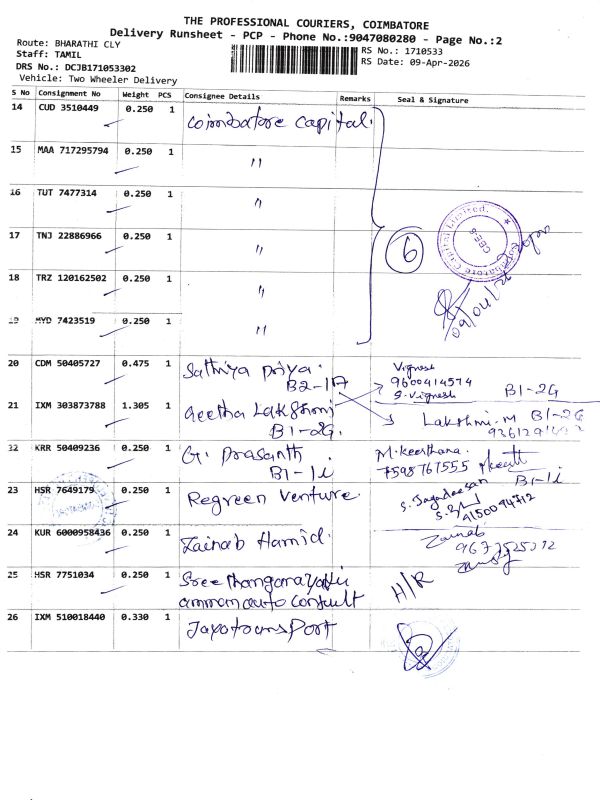 THE PROFESSIONAL COURIERS, COIMBATORE
Delivery Runsheet - PCP - Phone No.:9047080280 - Page No.:2
Route: BHARATHI CLY
Staff: TAMIL
DRS No.: DCJB171053302
Vehicle: Two Wheeler Delivery
RS No.: 1710533
RS Date: 09-Apr-2026
S No Consignment No Weight PCS Consignee Details Remarks Seal & Signature
14 CUD 3510449 0.250 1 Coimbatore capital.
15 MAA 717295794 0.250 1 "
16 TUT 7477314 0.250 1 "
17 TNJ 22886966 0.250 1 "
6
Coimbatore Capital Limited. CBE-
18 TRZ 120162502 0.250 1 "
09/04/26
19 MYD 7423519 0.250 1 "
20 CDM 50405727 0.475 1 Sathiya priya. B2-1A
Vignesh
9600414574
S. Vignesh B1-2G
21 IXM 303873788 1.305 1 Geetha Lakshmi B1-2G.
Lakshmi.M B1-2G
32 KRR 50409236 0.250 1 G. Prasanth B1-1i
M. Keerthana.
7598761555 B1-1i
23 HSR 7649179 0.250 1 Regreen Venture.
S. Jagadeesan
9150094712
24 KUR 6000958436 0.250 1 Zainab Hamid.
Zainab
25 HSR 7751034 0.250 1 Sree thanganayaki
amman auto consult
H/R
26 IXM 510018440 0.330 1 Jayatransport